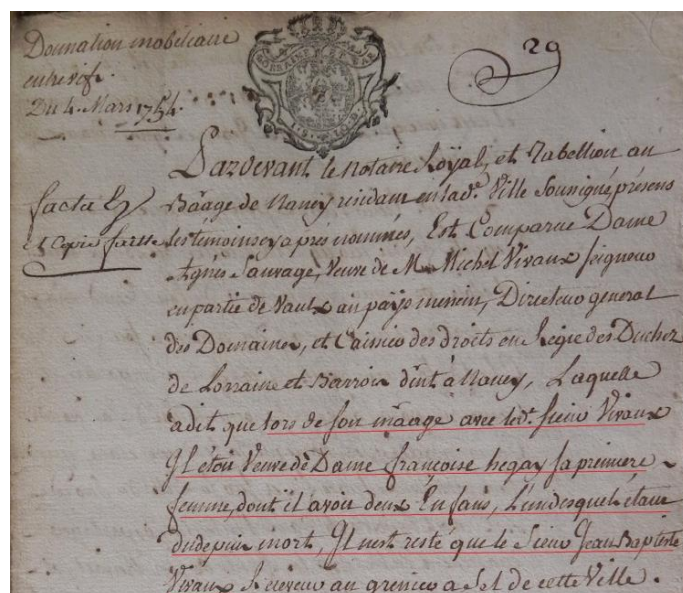 Donnation mobiliaire
entrevifs.
Du 4. Mars 1754.
29
LORRAINE ET
Pardevant le Notaire Royal, et Tabellion au
Baage de Nancy residant en lad.e Ville Soussigné présens
facta
et Copie faitte
les témoins cy après nommés, Est Comparue Dame
Agnés Sauvage, Veuve de M. Michel Vivaux Seigneur
en partie de Vaulx au pays messin, Directeur general
des Domaines, et Caissier des droits en Regie des Duchez
de Lorraine et Barrois dint à Nancy, Laquelle
a dit que lors de son maage avec led.t Sieur Vivaux
Il étoit Veuve de Dame françoise hegay sa premiere
femme, dont il avoit deux Enfans, L'un desquels étant
du depuis mort, Il n'est resté que le Sieur Jean Baptiste
Vivaux Receveur au grenier a Sel de cette Ville.